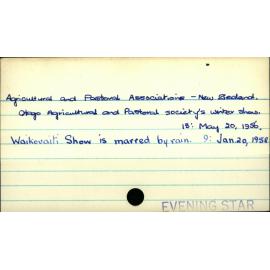 Agricultural and Pastoral Associations - New Zealand.
Otago Agricultural and Pastoral society's winter show.
18: May 20, 1956.
Waikouaiti Show is marred by rain. 9: Jan. 20, 1958
EVENING STAR